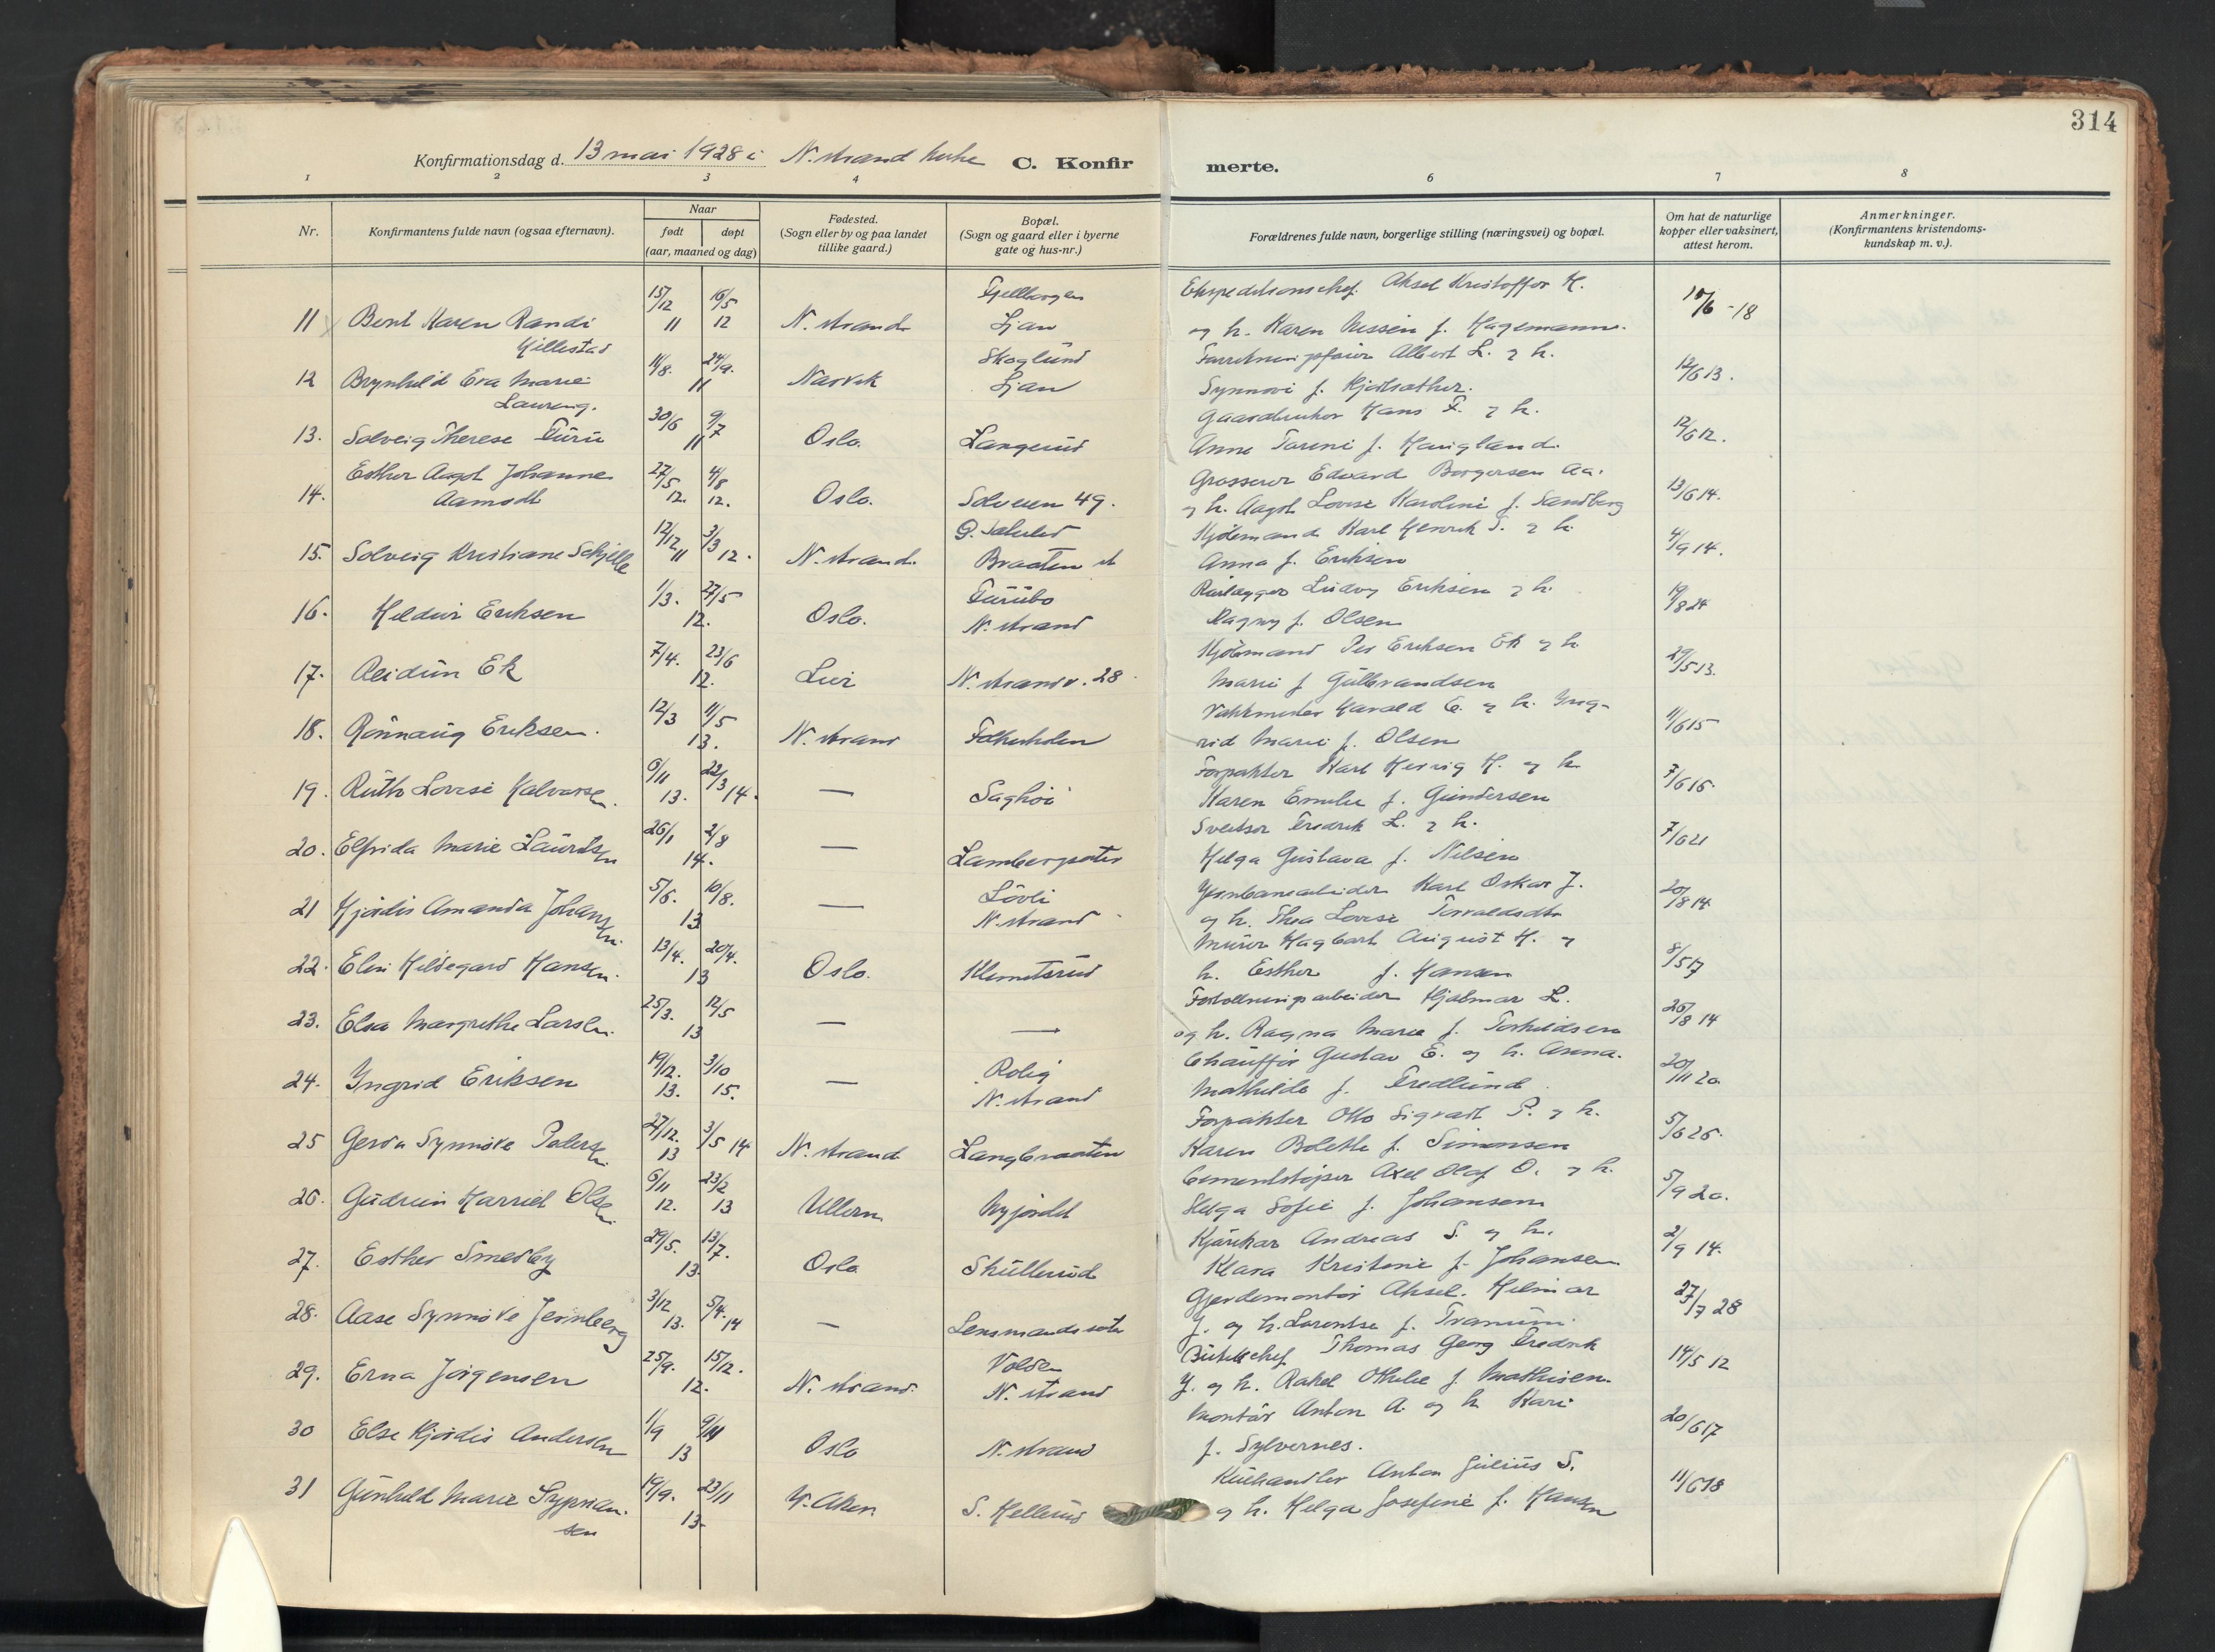 314
Konfirmationsdag d. 13 mai 1928 i N. strand kirke C. Konfirmerte.
1 2 3 4 6 7 8
Nr.
Konfirmantens fulde navn (ogsaa efternavn).
Naar
født døpt
(aar, maaned og dag)
Fødested.
(Sogn eller by og paa landet
tillike gaard.)
Bopæl.
(Sogn og gaard eller i byerne
gate og hus-nr.)
Forældrenes fulde navn, borgerlige stilling (næringsvei) og bopæl.
Om hat de naturlige
kopper eller vaksinert,
attest herom.
Anmerkninger.
(Konfirmantens kristendoms-
kundskap m. v.).
15/12 16/5 Fjellborgen Ekspeditionschef Aksel Kristoffer H.
11 Berit Karen Randi 11 12 N. strand Ljan og h. Karen Nissen f. Hagemann. 10/6 -18
Hillestad
11/8. 24/9. Skoglund Albert L. og h.
12 Brynhild Eva Marie 11 Narvik Ljan Synnøve f. 12/6 13.
Laureng.
30/6 9/7 Gaardbruker Hans F. og h.
13. Solveig Therese Furu 11 Oslo. Langerud Anne Tarine f. Haugland. 12/6 12.
Esther Aagot Johanne 27/5 4/8 Grosserer Edvard Borgersen Aa.
14. Aamodt 12. 12. Oslo. Solveien 49. og h. Aagot Lovise Karoline f. Sandberg 13/6 14.
12/12 3/3 Kjøbmand Karl Henrik S. og h.
15. Solveig Kristiane Schjelle 11 12. N. strand. Braaten Anna f. Eriksen 4/9 14.
1/3. 27/5 Furubo Rørlægger Ludvig Eriksen og h.
16. Heldur Eriksen 12. Oslo. N. strand Magny f. Olsen 19/8 24
7/4. 23/6 Kjøbmand Per Eriksen Ek og h.
17. Reidun Ek 12. Lier N. strandv. 28 Marie f. Gulbrandsen 29/5 13.
12/3 11/5 Vaktmester Harald E. og h. Ing-
18. Rønnaug Eriksen. 13. N. strand rid Marie f. Olsen 11/6 15
6/11 22/3 Forpakter Karl H. og h.
19. Ruth Lovise Halvorsen. 13. 14. — Saghøi Karen Emilie f. Gundersen 7/6 15.
26/1 2/8 Sveitser Fredrik L. og h.
20. Elfrida Marie Lauritsen 14. — Lambergsæter Helga Gustava f. Nilsen 7/6 21
5/6. 10/8. Løvli Jernbanearbeider Karl Oskar J.
21 Hjørdis Amanda Johansen. 13 — N. strand og h. Thea Lovise Torvaldsdtr 20/8 14
13/4. 20/4. Murer Hagbart August H. og
22. Elin Hildegard Hansen. 13 Oslo. Klemetsrud h. Esther f. Hansen 8/5 17
25/3. 12/5 Hjalmar L.
23. Elsa Margrethe Larsen. 13 — — og h. Ragna Marie f. Torkildsen 26/8 14
19/12. 3/10 Rolig Chauffør Gustav E. og h. Anna
24. Ingrid Eriksen 13. 15. — N. strand Mathilde f. Fredlund 20/11 20
27/12. 3/5 14 Forpakter Otto Sigvart P. og h.
25 Gerda Synnøve Pedersen 13 N. strand Langbraaten Karen Bolette f. Simonsen 5/6 25.
6/11 23/2 Cementstøper Axel Olaf O. og h.
26. Gudrun Harriet Olsen. 12. 13 Ullern Nyjordet Helga Sofie f. Johansen 5/9 20.
29/5. 13/7. Kjørekar Andreas S. og h.
27. Esther Smedby 13. Oslo Skullerud Klara Kristine f. Johansen 2/9 14.
3/12 5/4. Gjerdemontør Aksel Hilmar
28. Aase Synnøve Jernberg 13. 14 — Lensmandssæter J. og h. Lorentse f. Tranum 27/7 28
25/9. 15/12. Volden Thomas Georg Fredrik
29. Erna Jørgensen 12. N. strand. N. strand J. og h. Rakel Othilie f. Mathisen. 14/5 12
1/9 9/11 Montør Anton A. og h. Kari
30 Else Hjørdis Andersen 13 Oslo N. strand f. Sylvernes. 20/6 17
19/9. 23/11 Kulhandler Anton Julius S.
31 Gunhild Marie Syprian- 13. V. Aker. S. Hellerud og h. Helga Josefine f. Hansen 11/6 18
sen